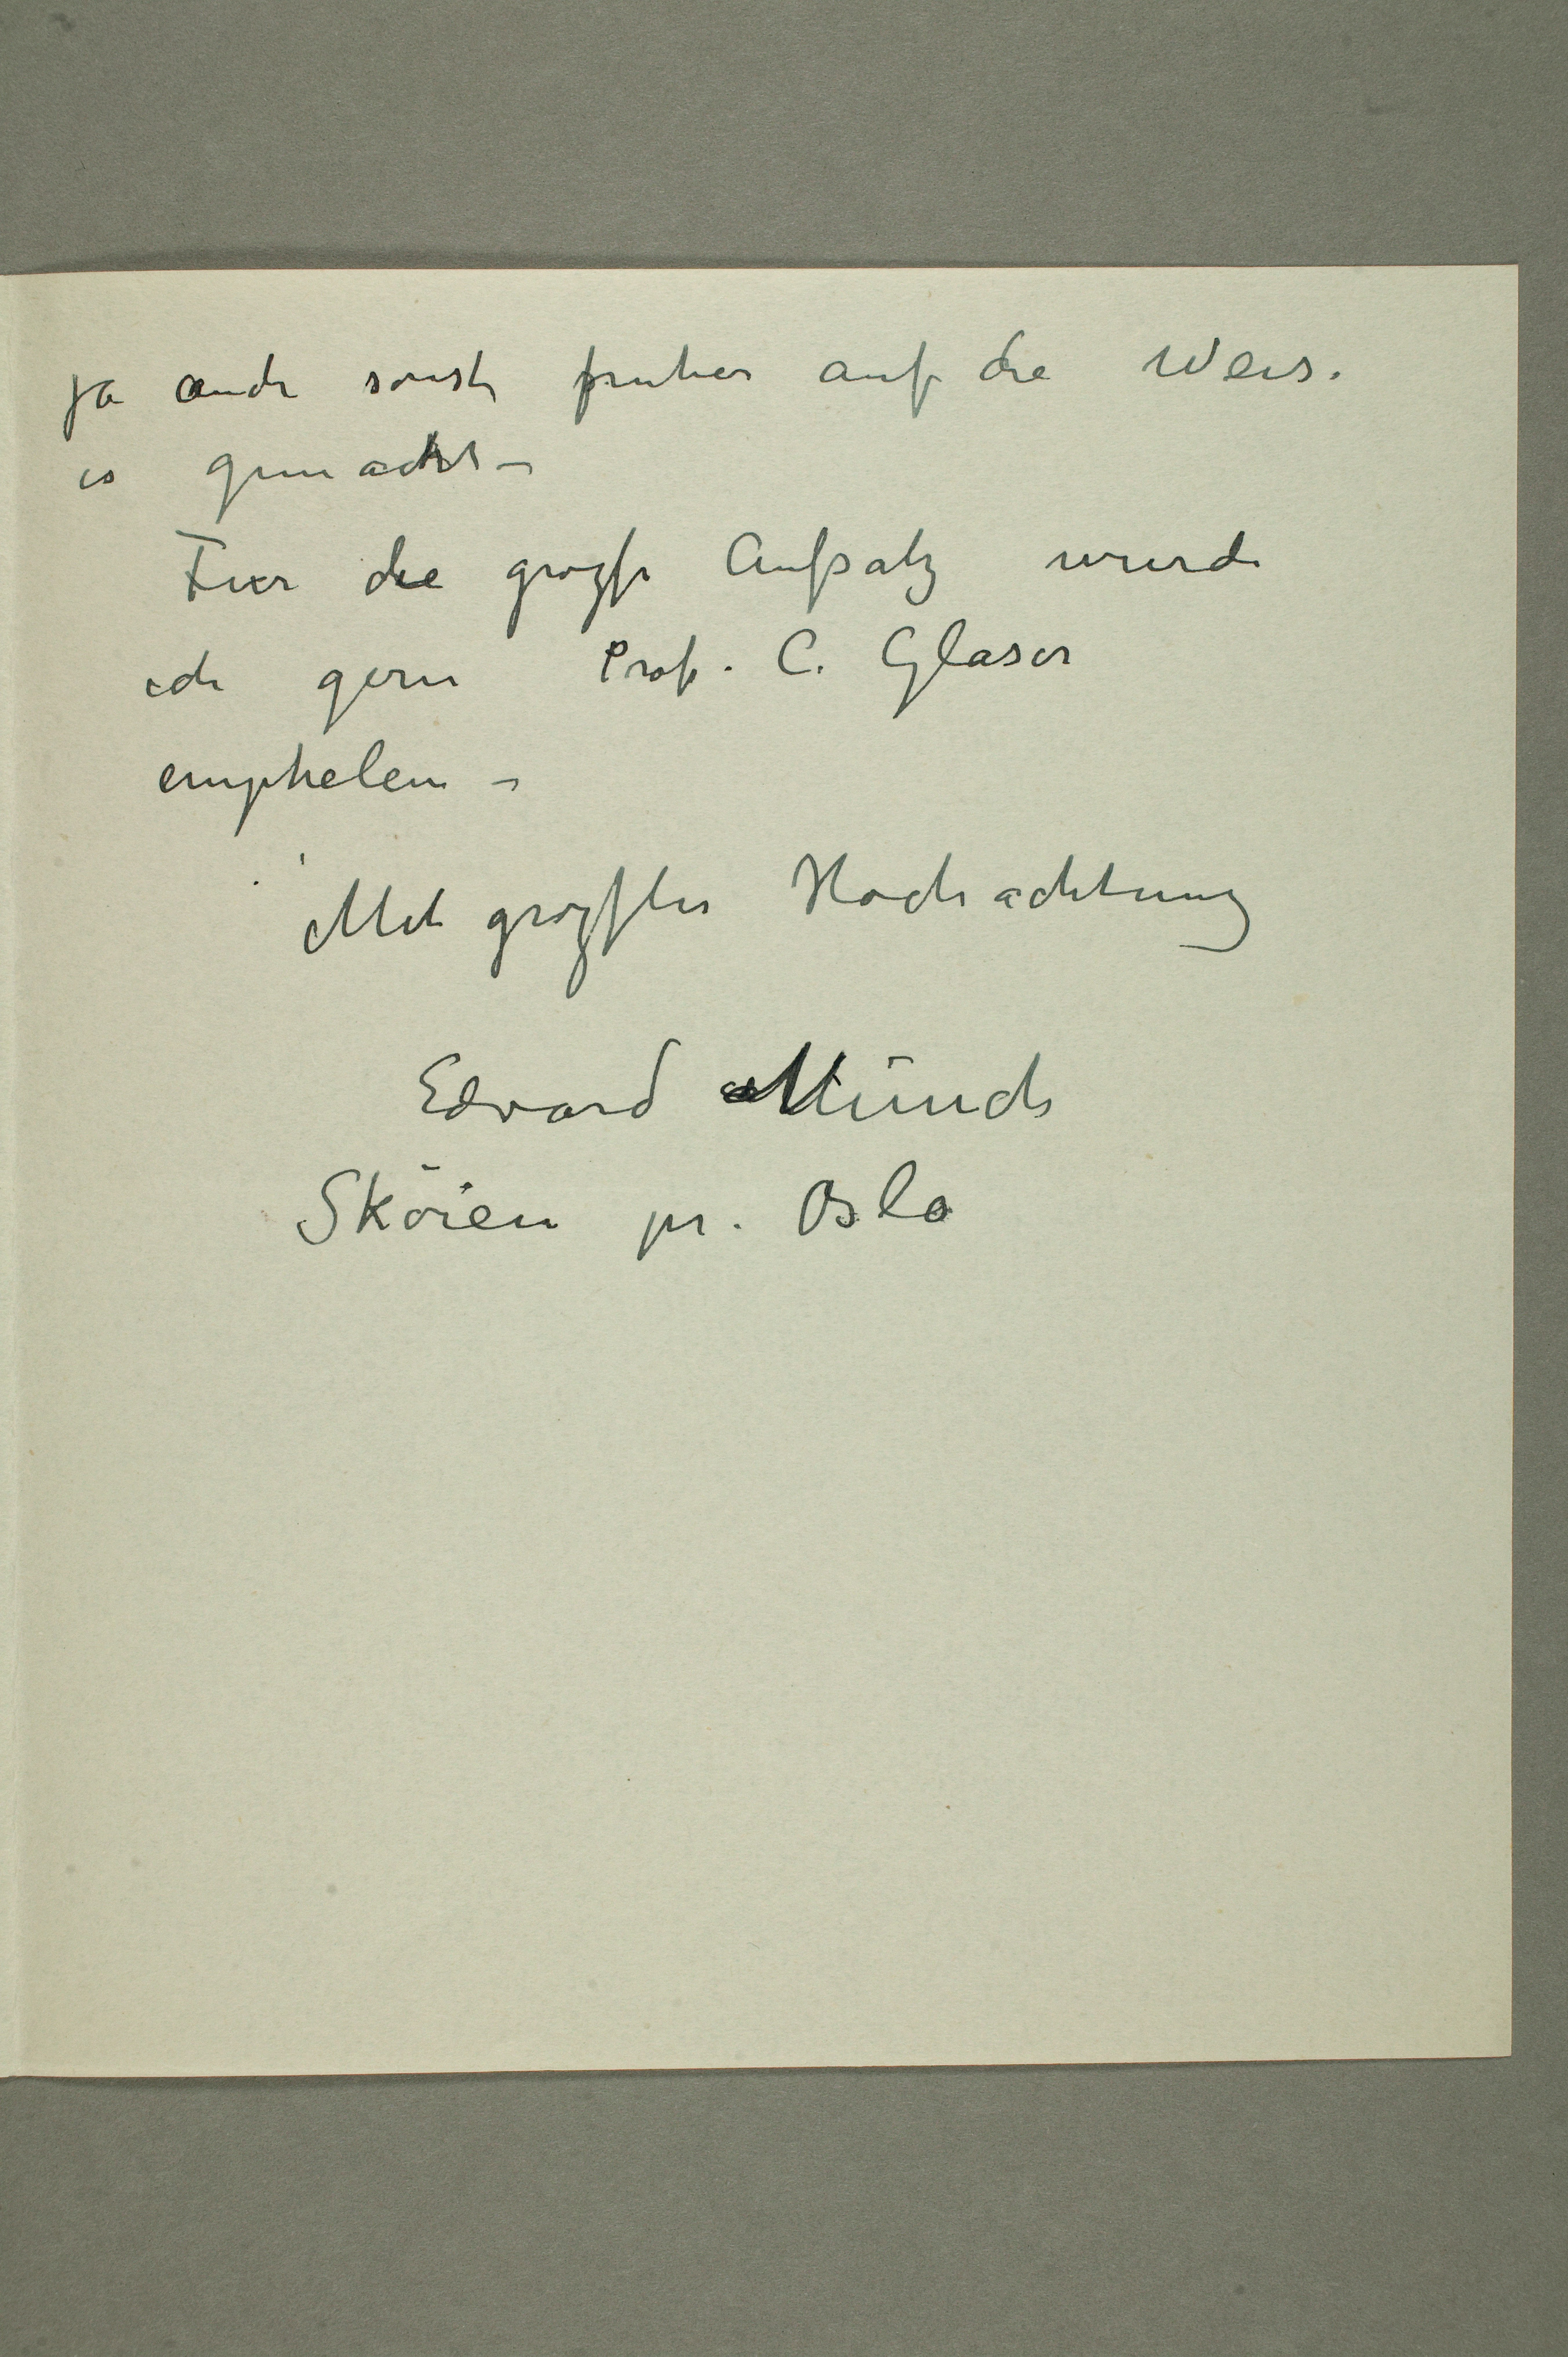 ja auch sonst fruher auf die Weis.
es gemacht –
Fur die grozse Aufsatz wurde
ich gern Prof. C. Glaser
emphelen –
Mit grozster Hochachtung
Edvard Münch
Sköien pr. Oslo